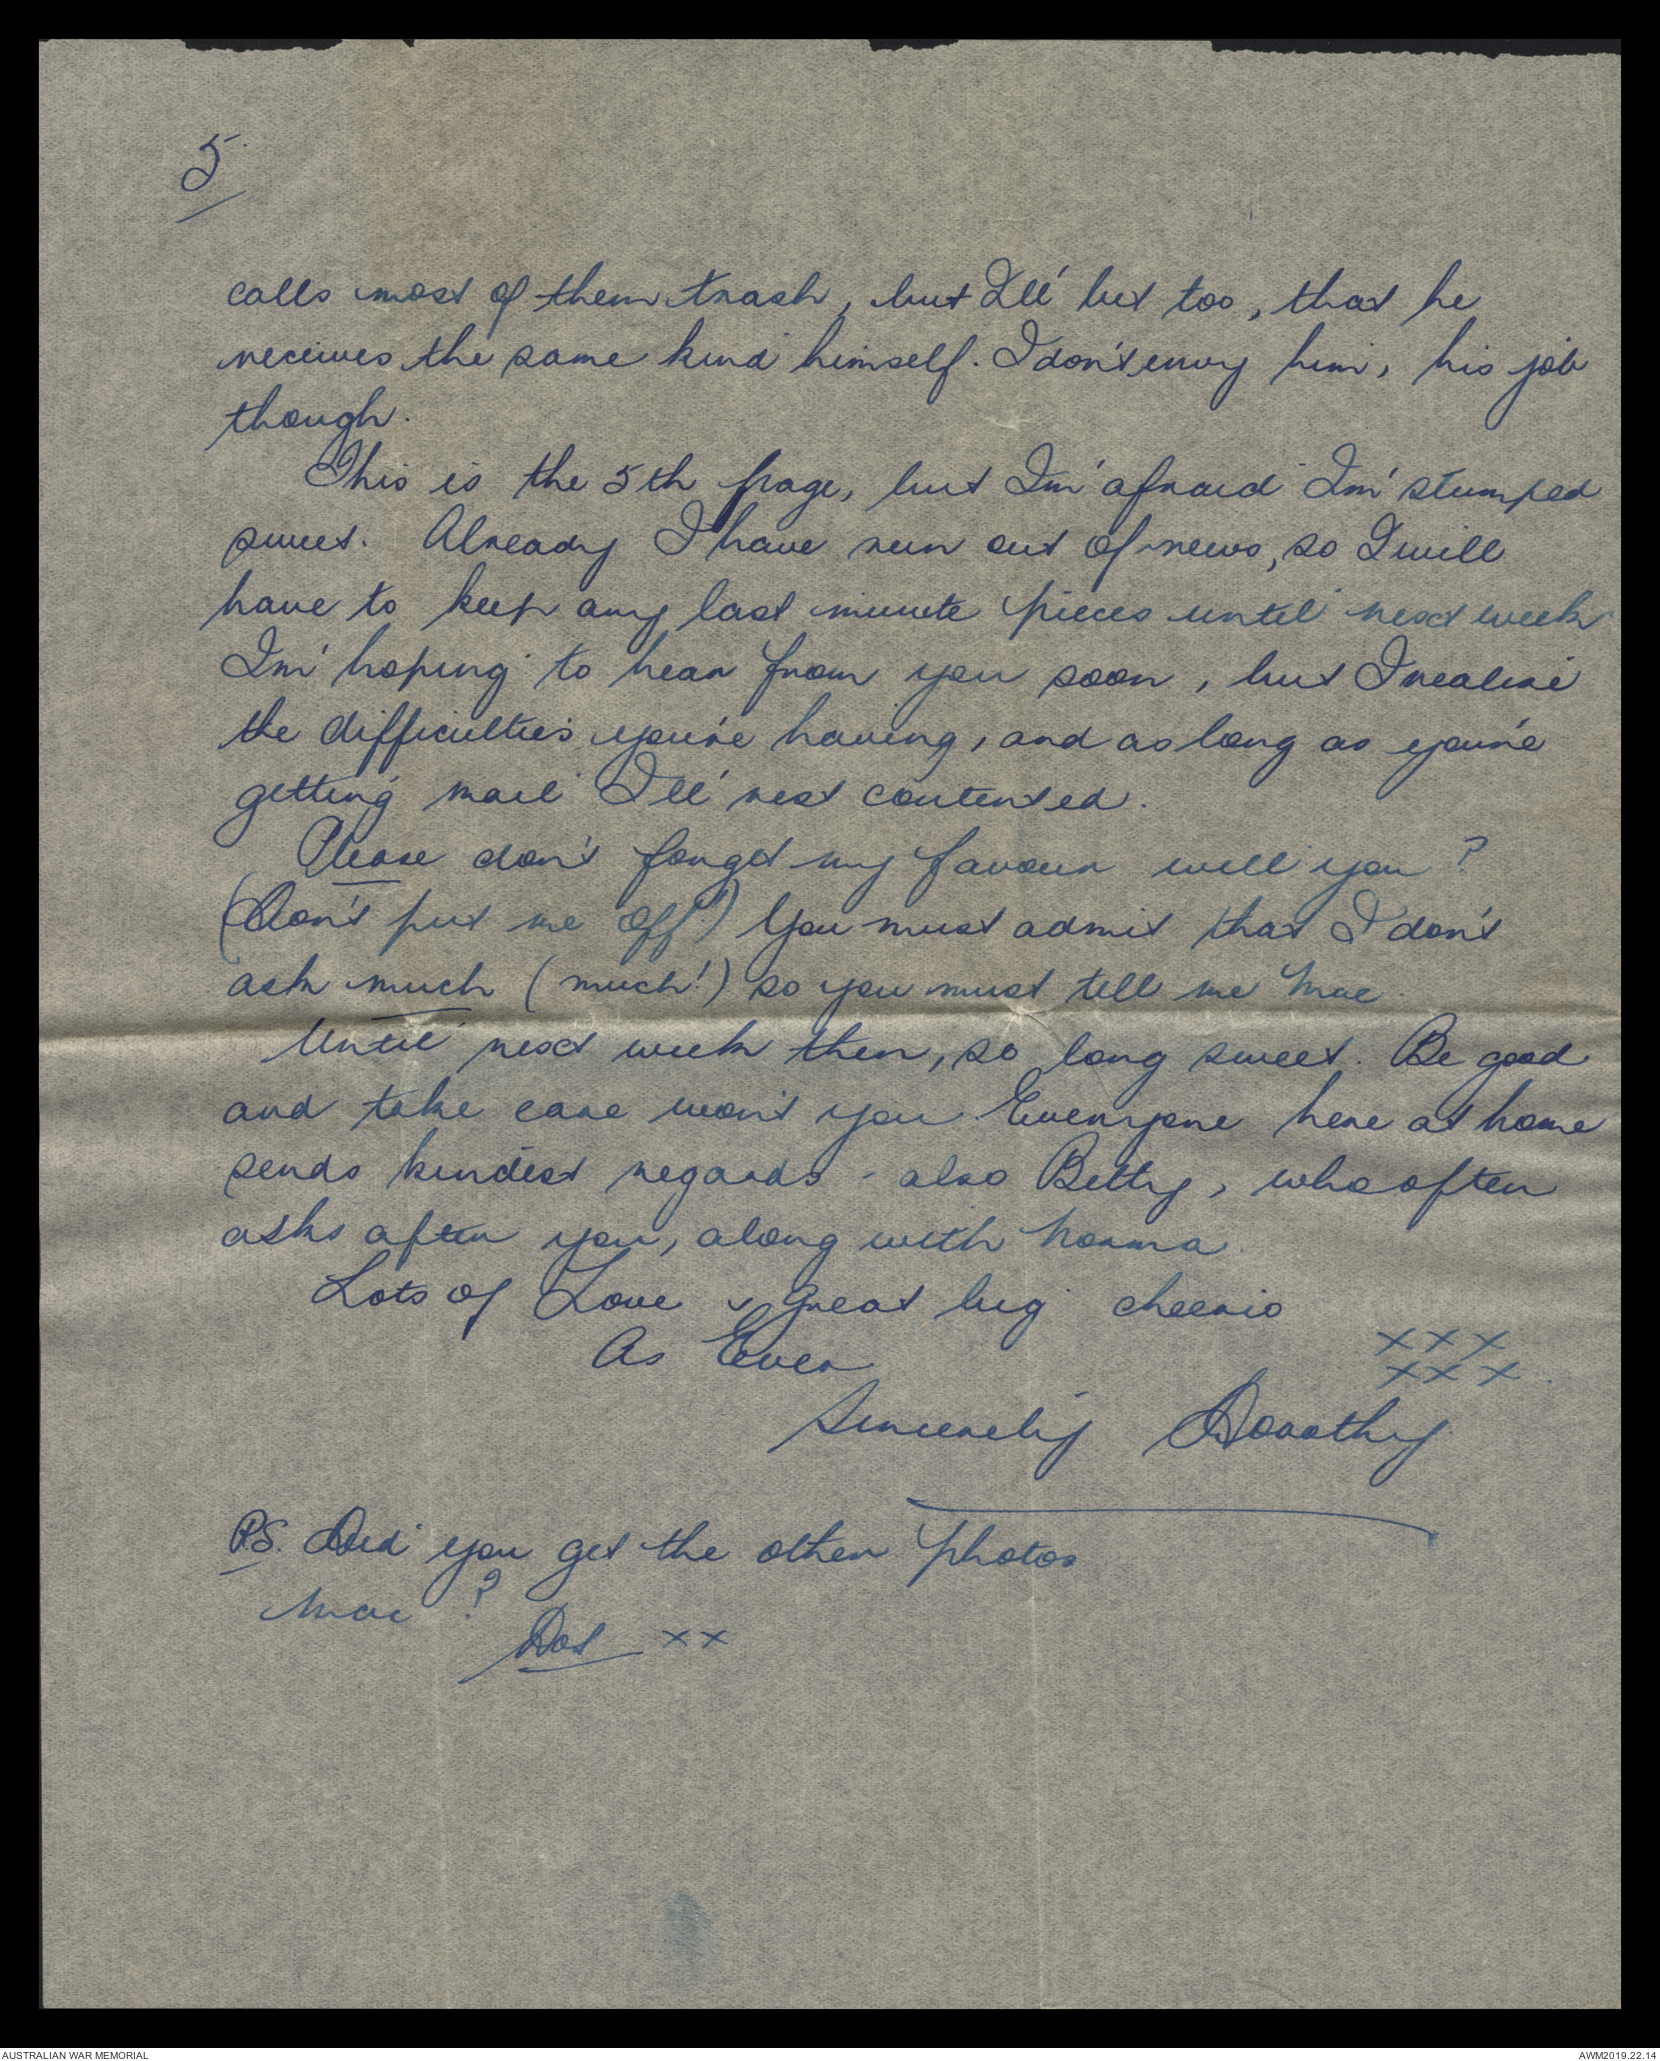 5
calls most of them trash, but I'll bet too, that he
receives the same kind himself. I don't envy him, his job
though.
This is the 5th page, but I'm afraid I'm stumped
sweet. Already I have run out of news, so I will
have to keep any last minute pieces until next week
I'm hoping to hear from you soon, but I realise
the difficulties you're having, and as long as you're
getting mail I'll rest contented.
Please don't forget my favour will you?
(Don't put me off!) You must admit that I don't
ask much (much!) so you must tell me Mac.
Until next week then, so long sweet. Be good
and take care won't you Everyone here at home
sends kindest regards - also Betty, who often
asks after you, along with Norma.
Lots of Love & great big cheerio
As Ever
xxx
xxx.
Sincerely Dorothy
P.S. Did you get the other photos
Mac?
Dot xx
AUSTRALIAN WAR MEMORIAL
AWM2019.22.14